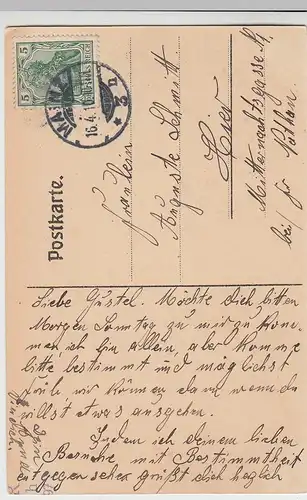 5 5
MAINZ
16.4.
* 3 n
Postkarte.
Fräulein
Auguste Schmitt
Hier
Mitternachtsgasse 11
bei
Liebe Gustel. Möchte dich bitten
Morgen Sonntag zu mir zu kom-
men, ich bin allein, aber komme
bitte bestimmt und möglichst
früh, wir können dann wenn du
willst etwas ausgehen.
Indem ich deinem lieben
mit Bestimmtheit
entgegen sehe grüßt dich herzlich